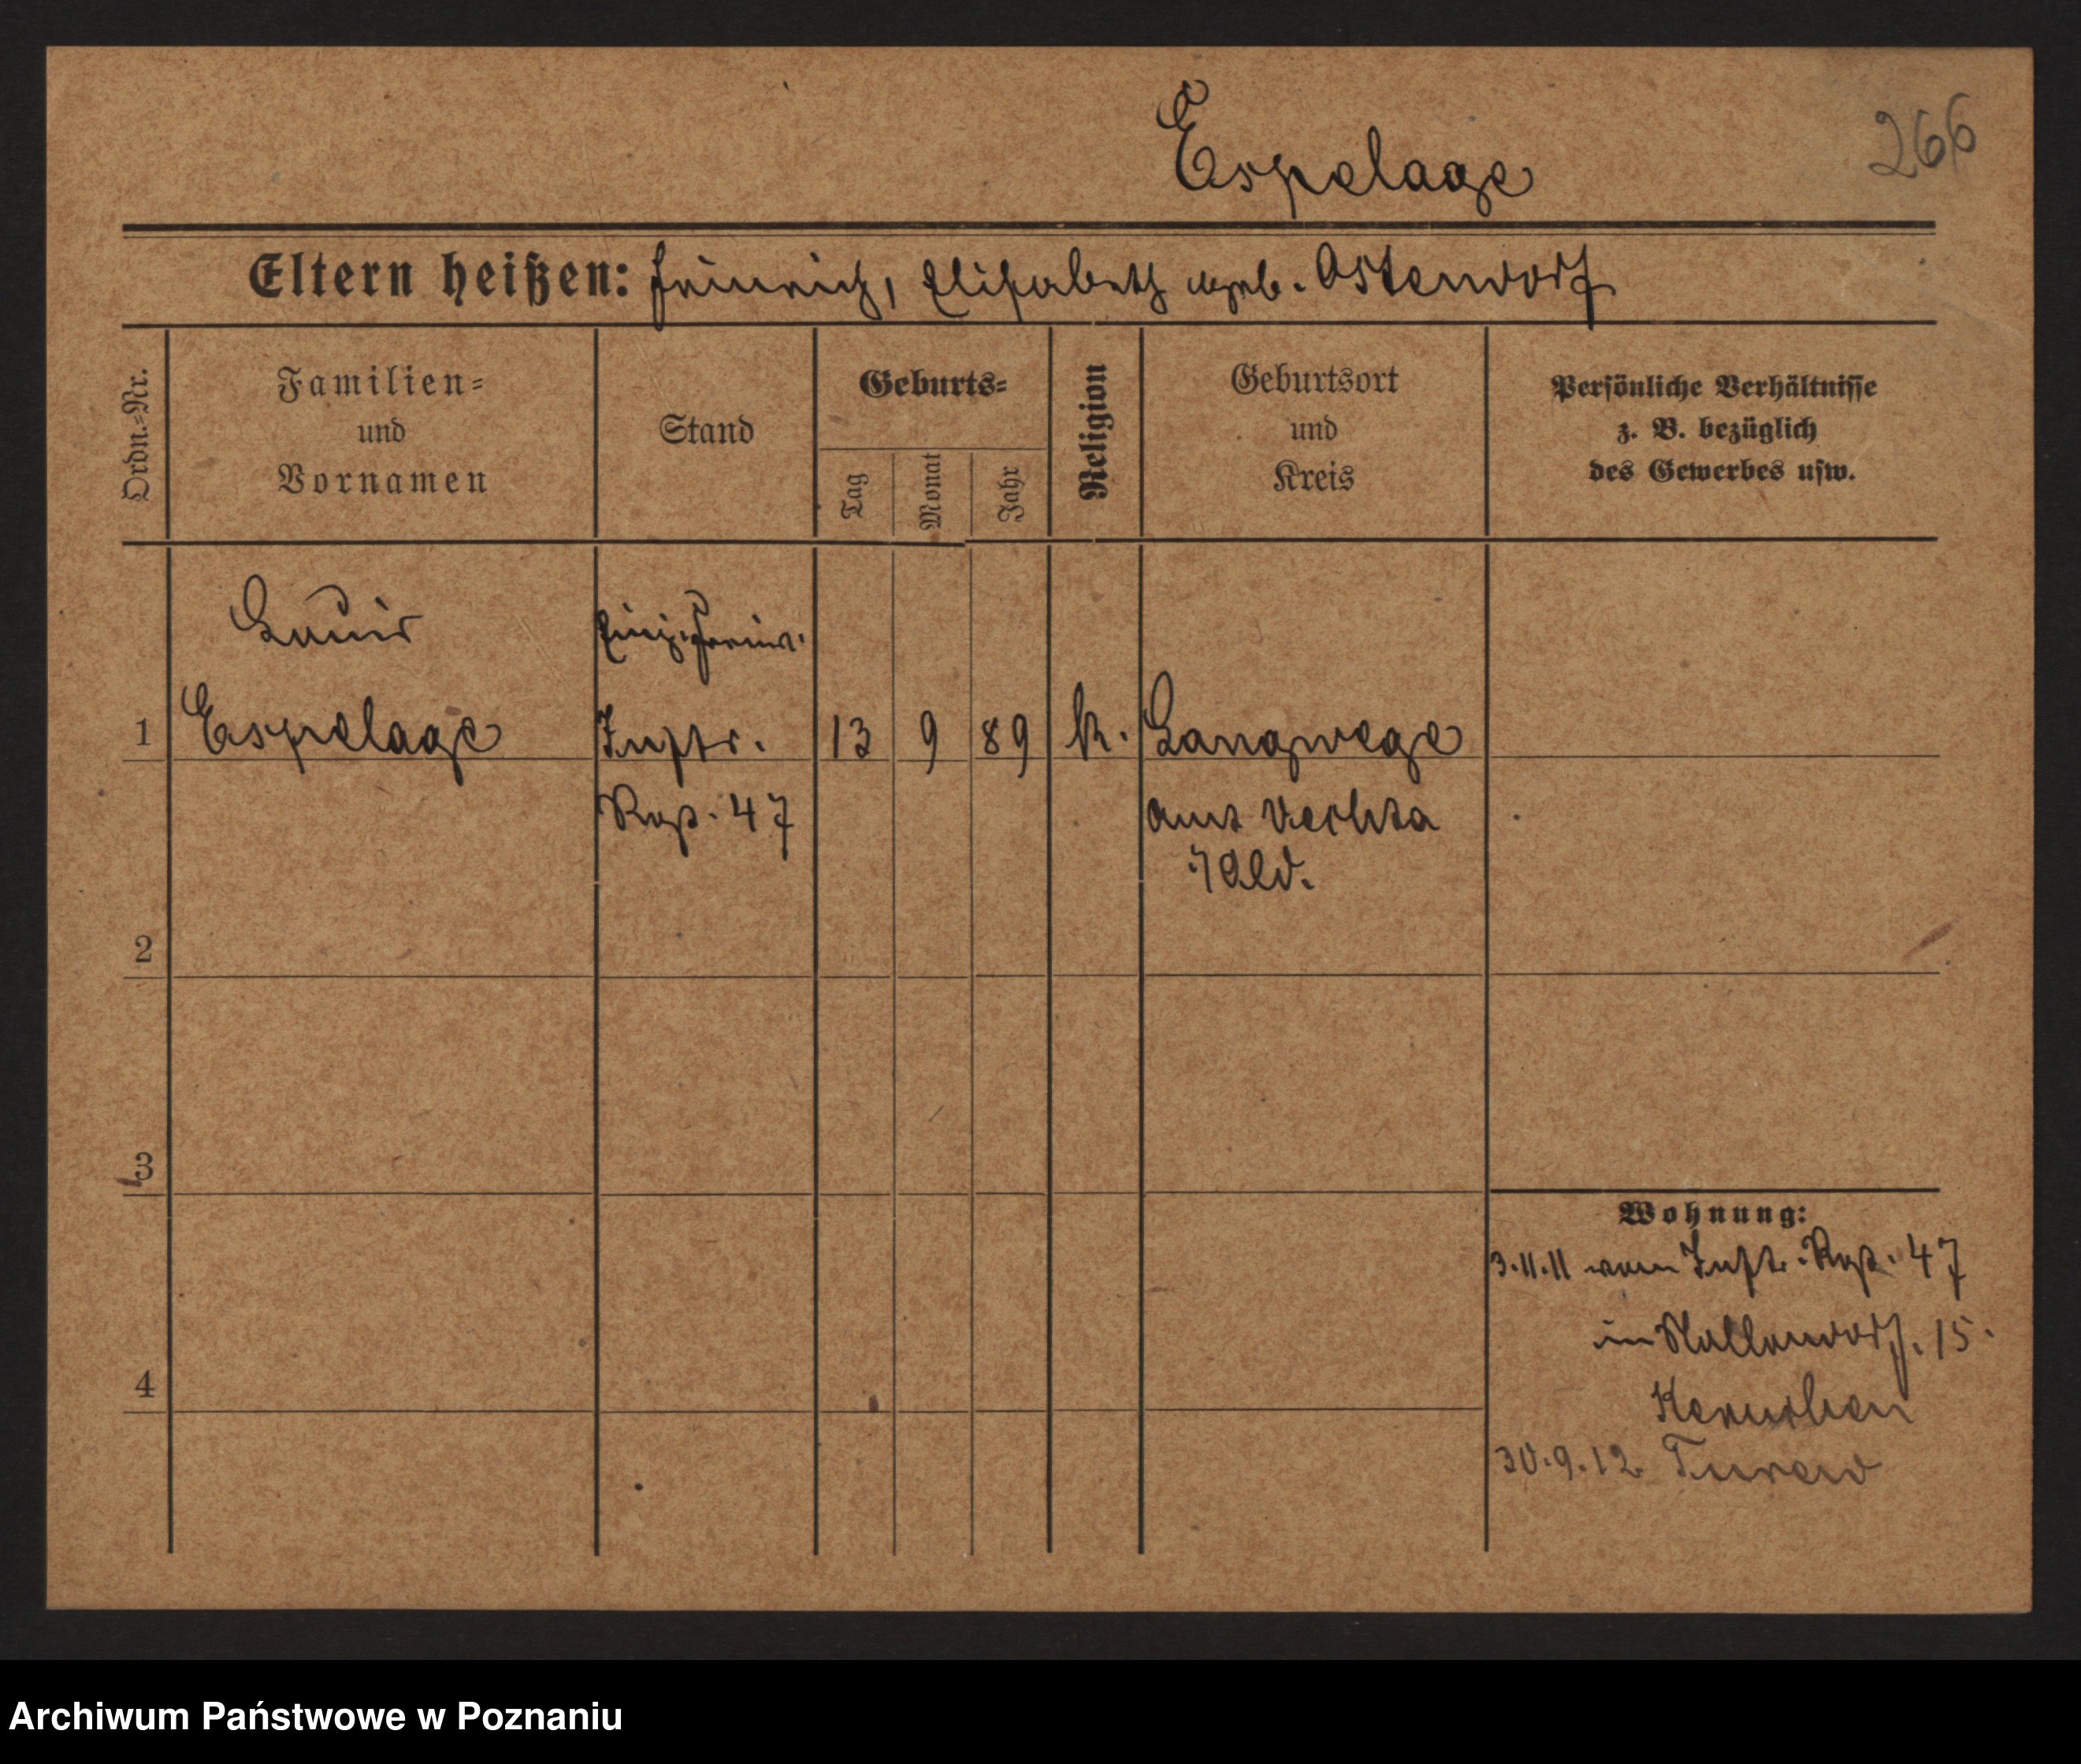 266
Espelage
Eltern heißen: Heinrich, Elisabeth geb. Ostendorf
Ordn.=Nr.
Familien=
und
Vornamen
Stand
Geburts=
Tag
Monat
Jahr
Religion
Geburtsort
und
Kreis
Persönliche Verhältnisse
z. B. bezüglich
des Gewerbes usw.
Louis
Einj. Freiw.
1 Espelage Inftr. 13 9 89 k. Langwege
Regt. 47 Amt Vechta
i/Old.
2
3
4
Wohnung:
3.11.11 vom Inftr. Regt. 47
15.
30.9.12.
Archiwum Państwowe w Poznaniu